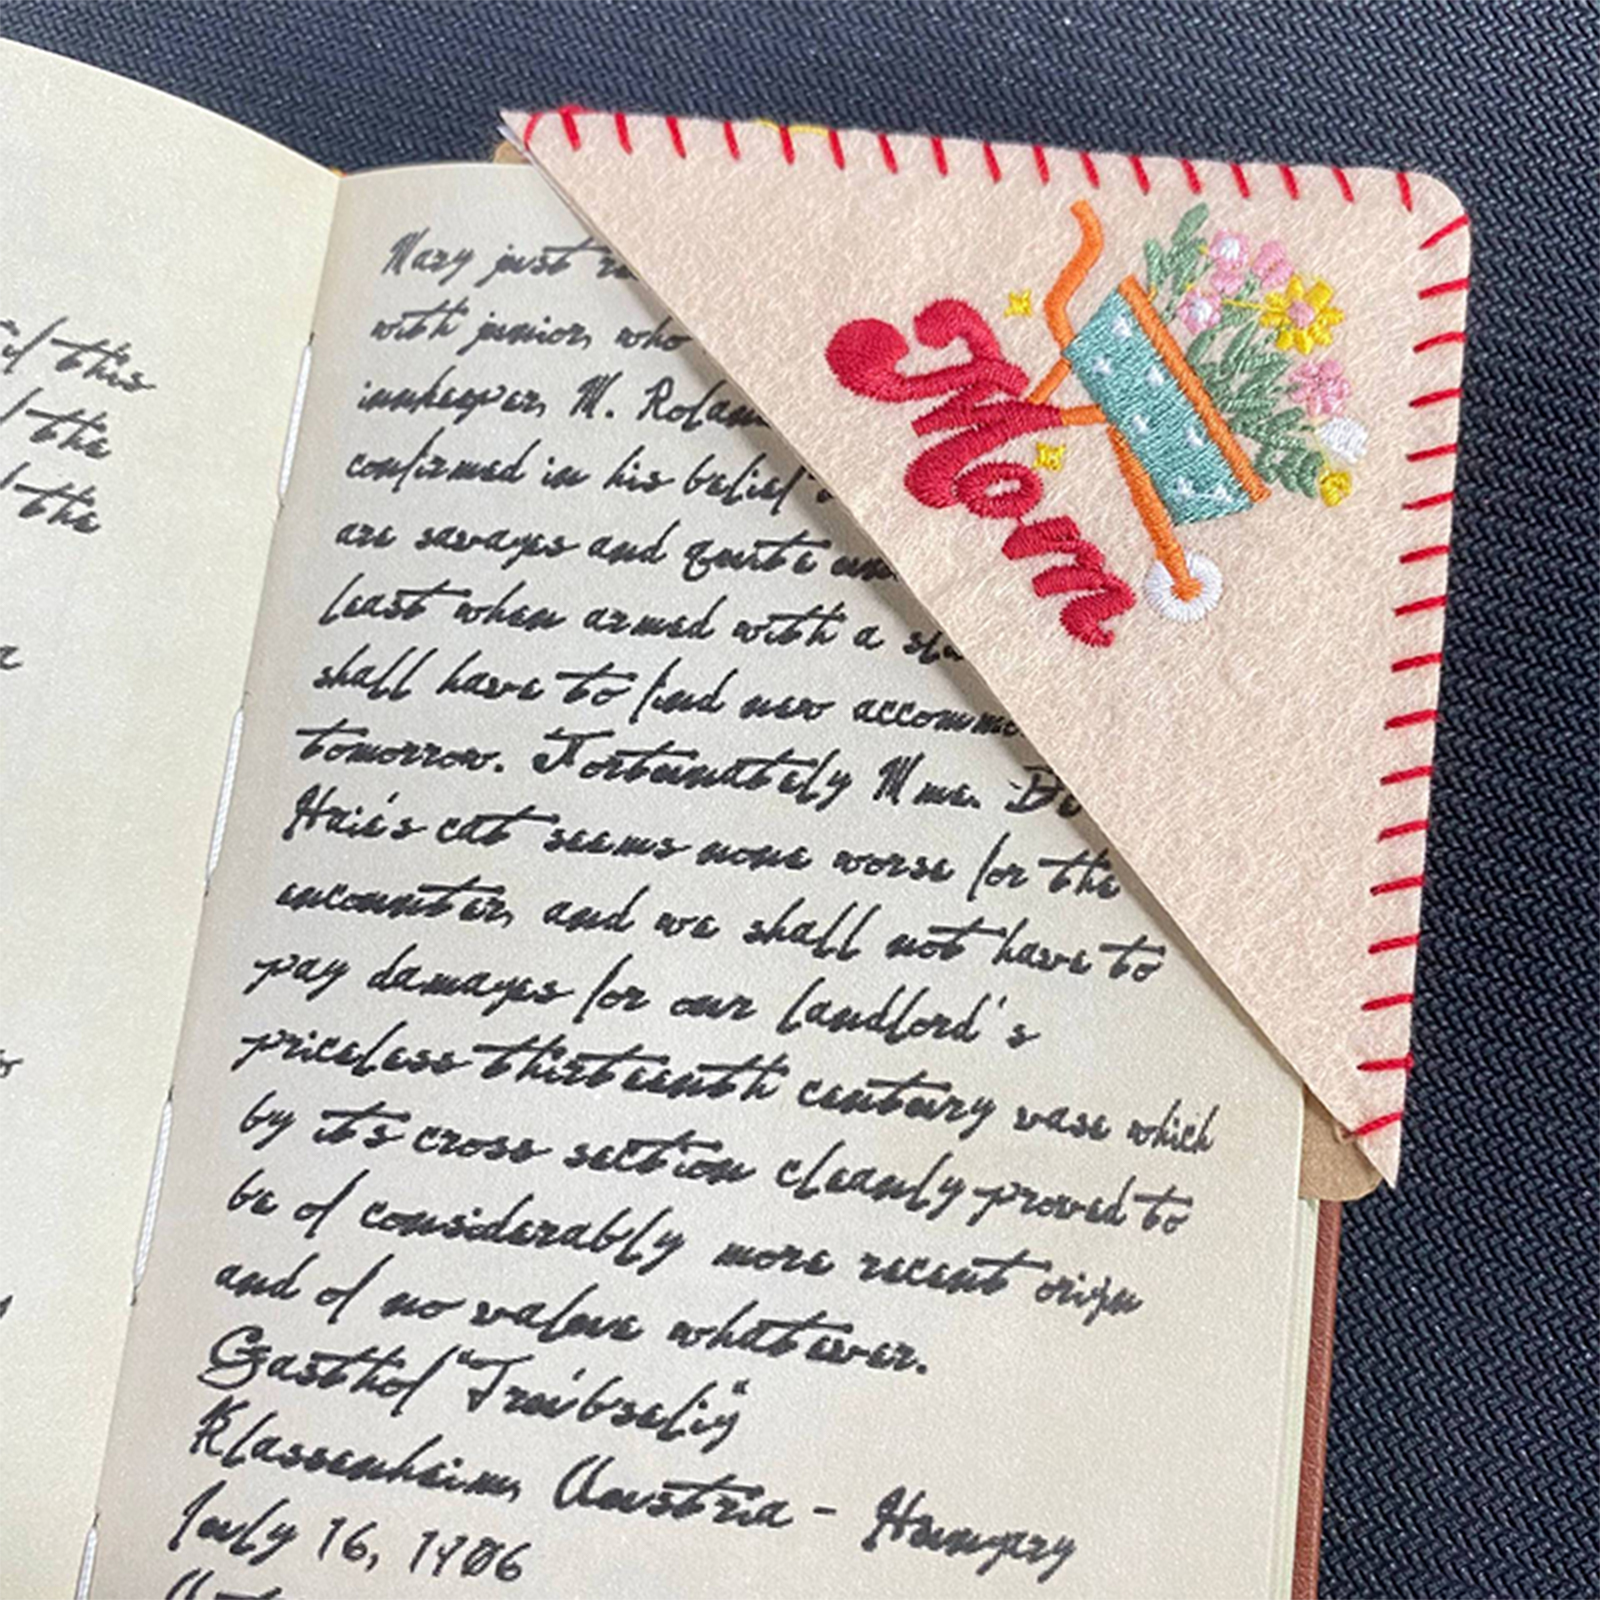 this
the
the
Mom
Mary just
with junior, who
innkeeper, M. Rolan
confirmed in his belief
are savages and quite
least when armed with a
shall have to find new accommo
tomorrow. Fortunately Mme. De
Haie's cat seems none worse for the
encounter, and we shall not have to
pay damages for our landlord's
priceless thirteenth century vase which
by its cross section cleanly proved to
be of considerably more recent origin
and of no value whatever.
Gasthof "Treibselig"
Klassenheim, Austria - Hungary
July 16, 1906